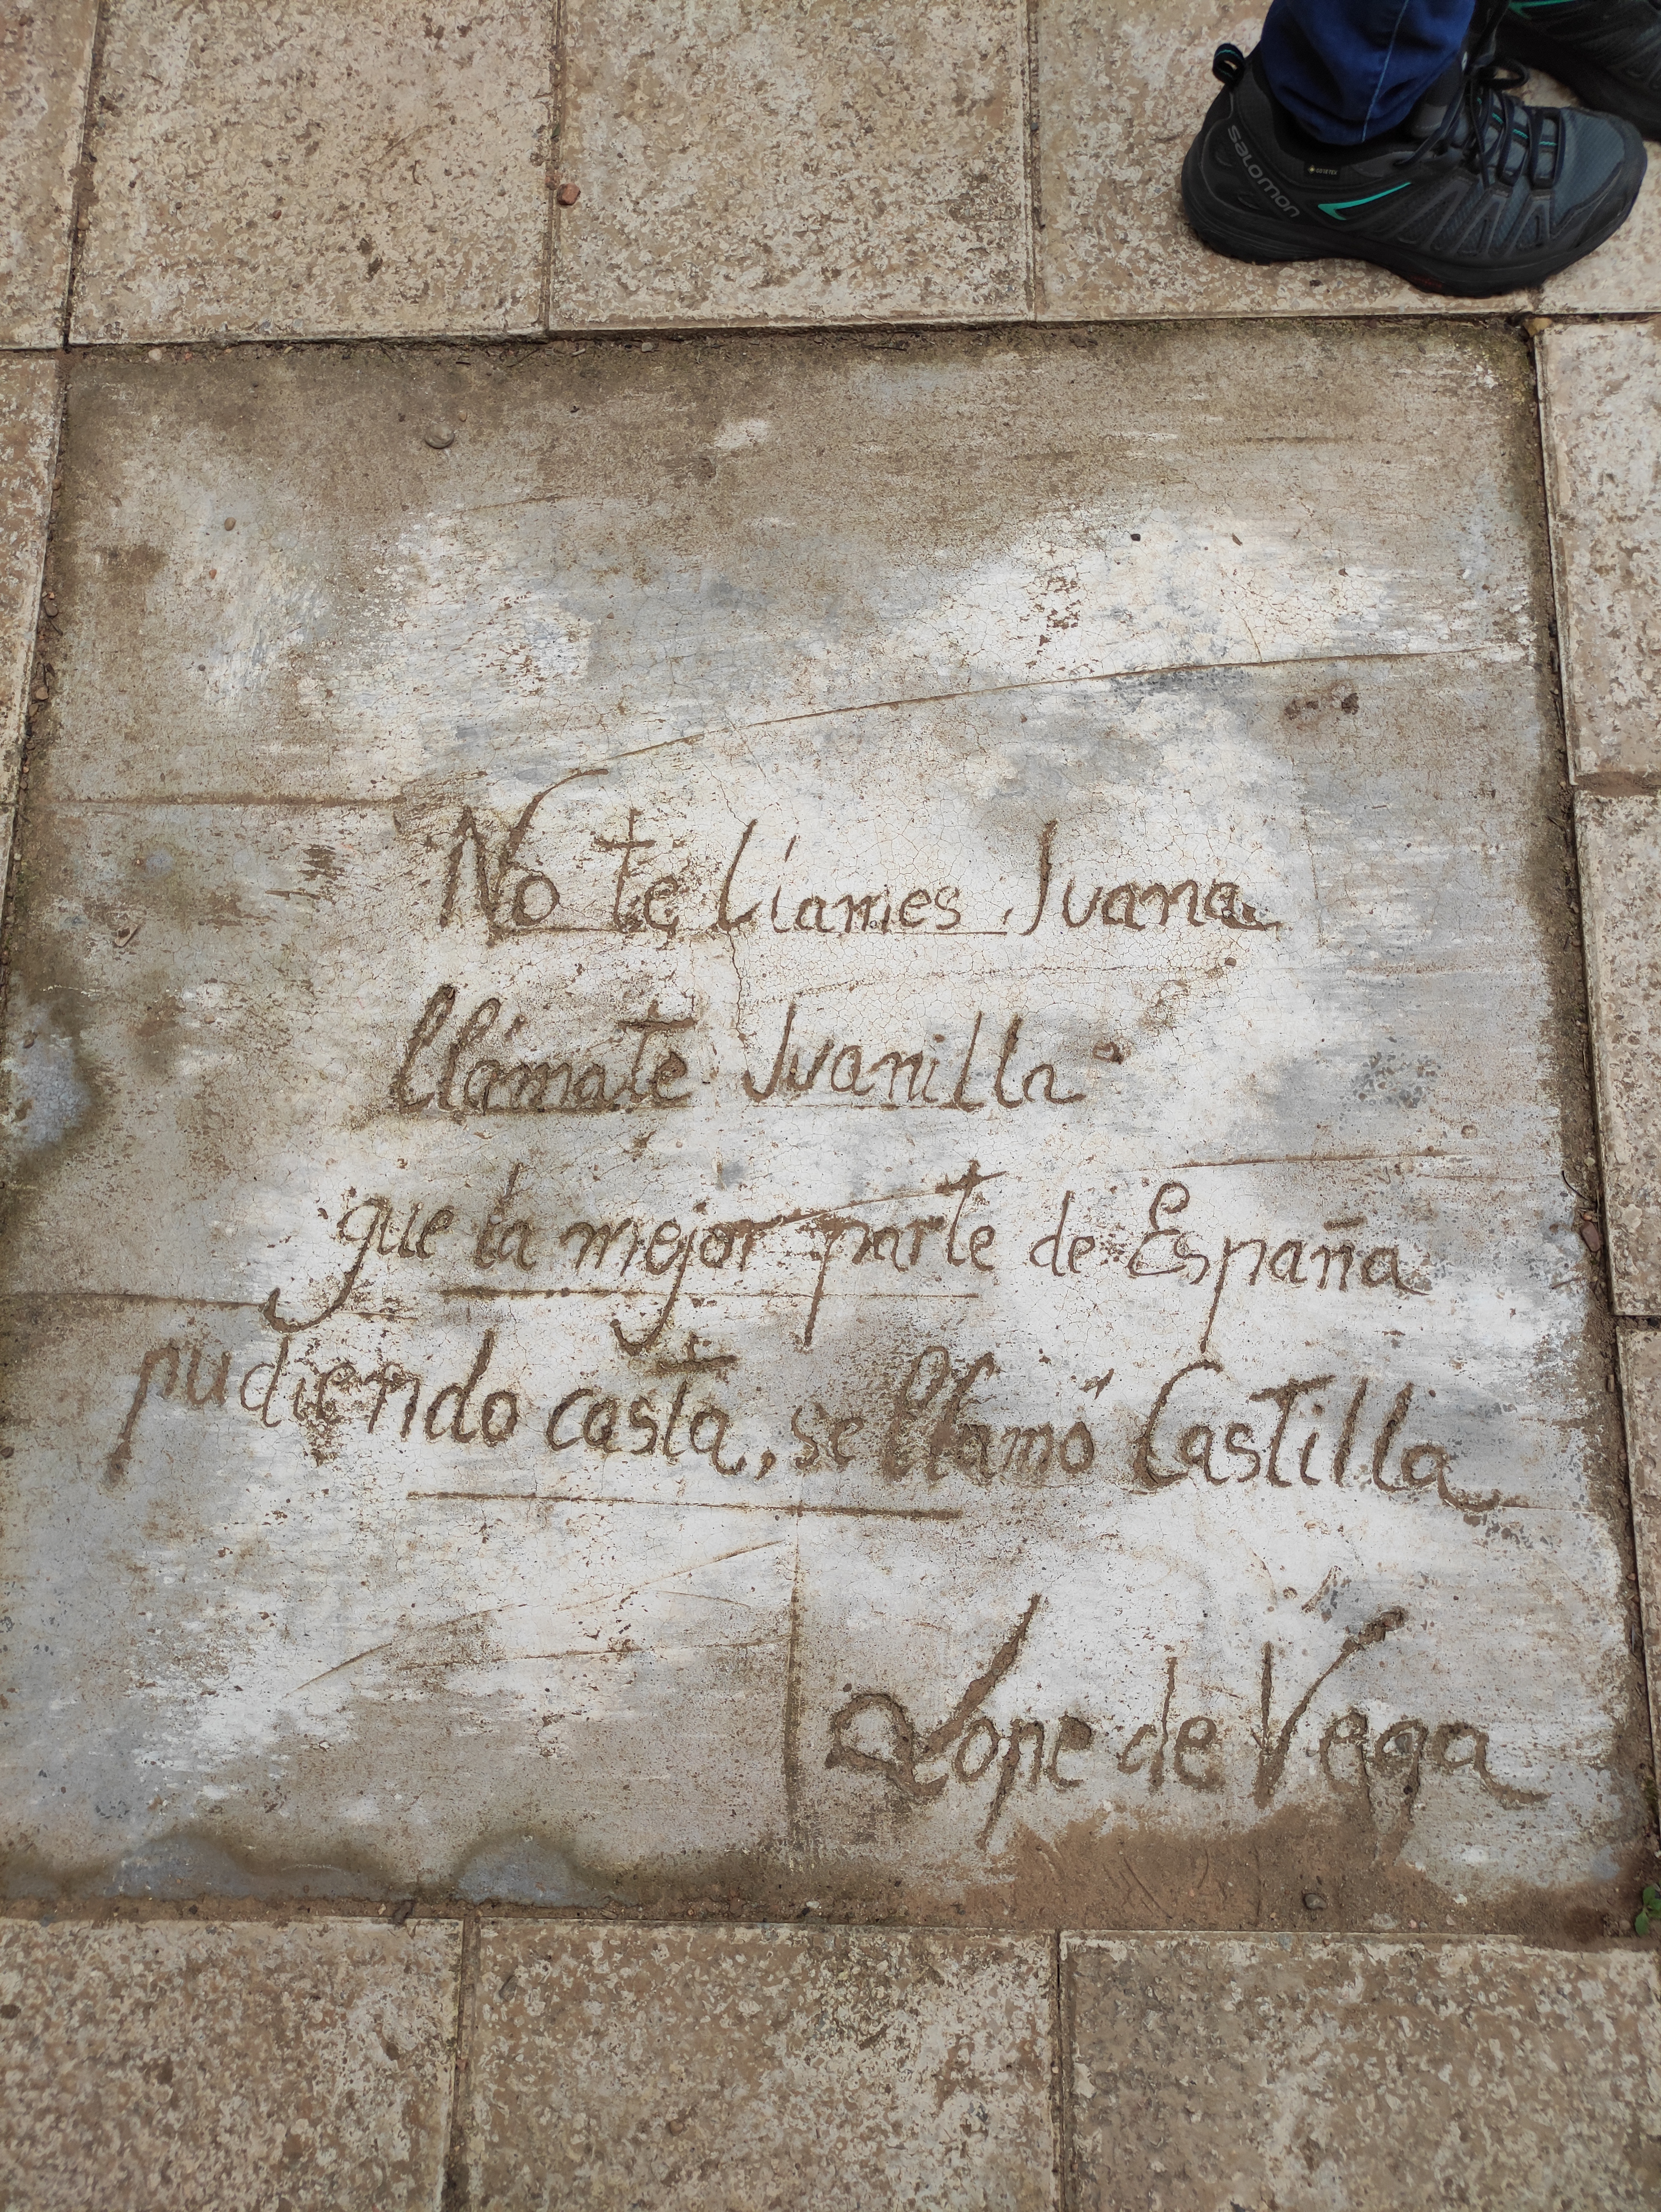 salomon
GORE-TEX
No te llames Juana
llámate Juanilla
que la mejor parte de España
pudiendo casta, se llamó Castilla
Lope de Vega